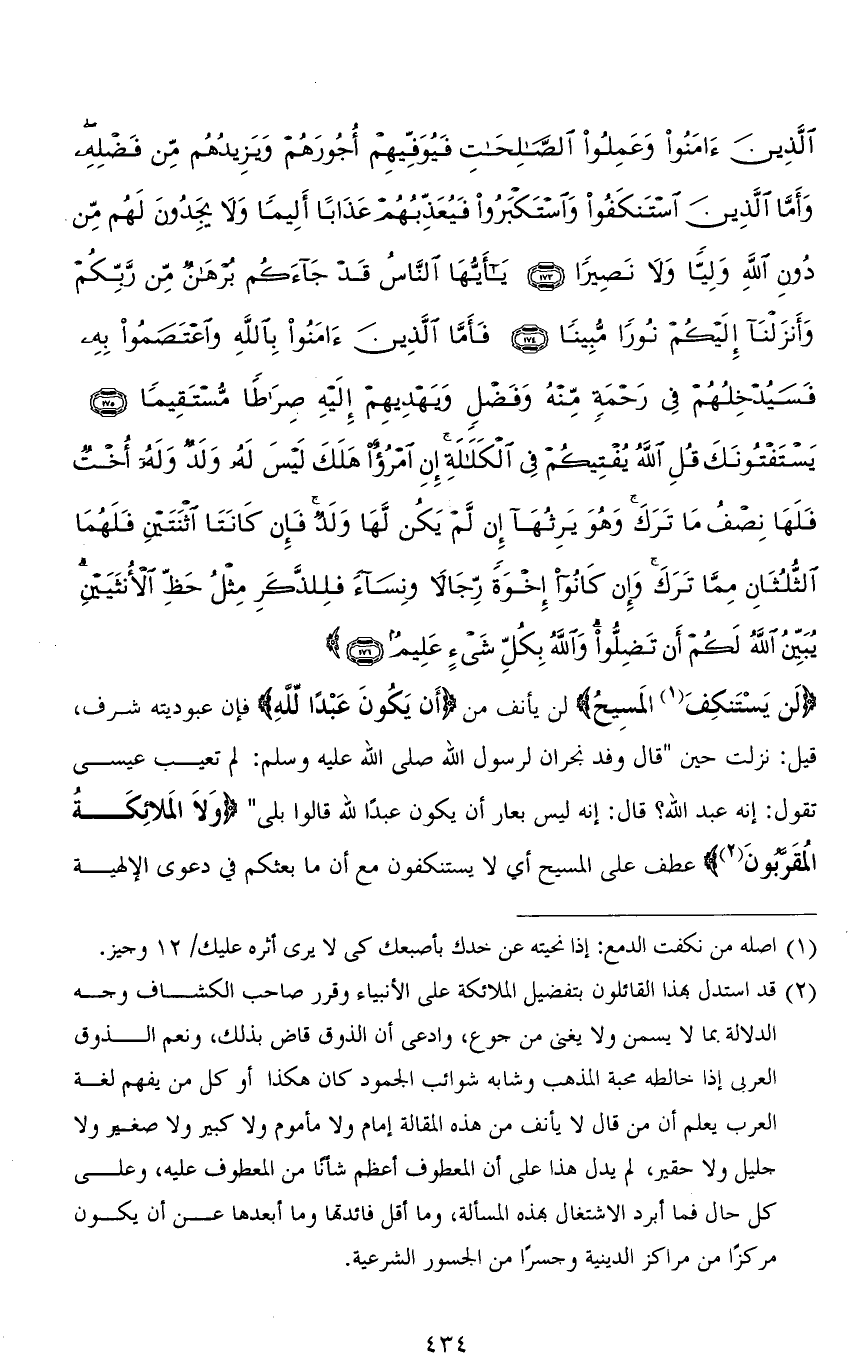 ٱلَّذِينَ ءَامَنُوا۟ وَعَمِلُوا۟ ٱلصَّـٰلِحَـٰتِ فَيُوَفِّيهِمْ أُجُورَهُمْ وَيَزِيدُهُم مِّن فَضْلِهِۦ ۖ
وَأَمَّا ٱلَّذِينَ ٱسْتَنكَفُوا۟ وَٱسْتَكْبَرُوا۟ فَيُعَذِّبُهُمْ عَذَابًا أَلِيمًا وَلَا يَجِدُونَ لَهُم مِّن
دُونِ ٱللَّهِ وَلِيًّا وَلَا نَصِيرًا ١٧٣ يَـٰٓأَيُّهَا ٱلنَّاسُ قَدْ جَآءَكُم بُرْهَـٰنٌ مِّن رَّبِّكُمْ
وَأَنزَلْنَآ إِلَيْكُمْ نُورًا مُّبِينًا ١٧٤ فَأَمَّا ٱلَّذِينَ ءَامَنُوا۟ بِٱللَّهِ وَٱعْتَصَمُوا۟ بِهِۦ
فَسَيُدْخِلُهُمْ فِى رَحْمَةٍ مِّنْهُ وَفَضْلٍ وَيَهْدِيهِمْ إِلَيْهِ صِرَٰطًا مُّسْتَقِيمًا ١٧٥
يَسْتَفْتُونَكَ قُلِ ٱللَّهُ يُفْتِيكُمْ فِى ٱلْكَلَـٰلَةِ ۚ إِنِ ٱمْرُؤٌا۟ هَلَكَ لَيْسَ لَهُۥ وَلَدٌ وَلَهُۥٓ أُخْتٌ
فَلَهَا نِصْفُ مَا تَرَكَ ۚ وَهُوَ يَرِثُهَآ إِن لَّمْ يَكُن لَّهَا وَلَدٌ ۚ فَإِن كَانَتَا ٱثْنَتَيْنِ فَلَهُمَا
ٱلثُّلُثَانِ مِمَّا تَرَكَ ۚ وَإِن كَانُوٓا۟ إِخْوَةً رِّجَالًا وَنِسَآءً فَلِلذَّكَرِ مِثْلُ حَظِّ ٱلْأُنثَيَيْنِ ۗ
يُبَيِّنُ ٱللَّهُ لَكُمْ أَن تَضِلُّوا۟ ۗ وَٱللَّهُ بِكُلِّ شَىْءٍ عَلِيمٌۢ ١٧٦ ﴾
﴿لَن يَسْتَنكِفَ(١) الْمَسِيحُ﴾ لن يأنف من ﴿أَن يَكُونَ عَبْدًا لِّلَّهِ﴾ فإن عبوديته شرف،
قيل: نزلت حين "قال وفد نجران لرسول الله صلى الله عليه وسلم: لم تعيب عيسى
تقول: إنه عبد الله؟ قال: إنه ليس بعار أن يكون عبدًا لله قالوا بلى" ﴿وَلاَ الْمَلائِكَةُ
الْمُقَرَّبُونَ(٢)﴾ عطف على المسيح أي لا يستنكفون مع أن ما بعثكم في دعوى الإلهية
(١) اصله من نكفت الدمع: إذا نحيته عن خدك بأصبعك كى لا يرى أثره عليك/ ١٢ وجيز.
(٢) قد استدل بهذا القائلون بتفضيل الملائكة على الأنبياء وقرر صاحب الكشاف وجه
الدلالة بما لا يسمن ولا يغنى من جوع، وادعى أن الذوق قاض بذلك، ونعم الذوق
العربى إذا خالطه محبة المذهب وشابه شوائب الجمود كان هكذا أو كل من يفهم لغة
العرب يعلم أن من قال لا يأنف من هذه المقالة إمام ولا مأموم ولا كبير ولا صغير ولا
جليل ولا حقير، لم يدل هذا على أن المعطوف أعظم شأنًا من المعطوف عليه، وعلى
كل حال فما أبرد الاشتغال بهذه المسألة، وما أقل فائدتها وما أبعدها عن أن يكون
مركزًا من مراكز الدينية وجسرًا من الجسور الشرعية.
٤٣٤